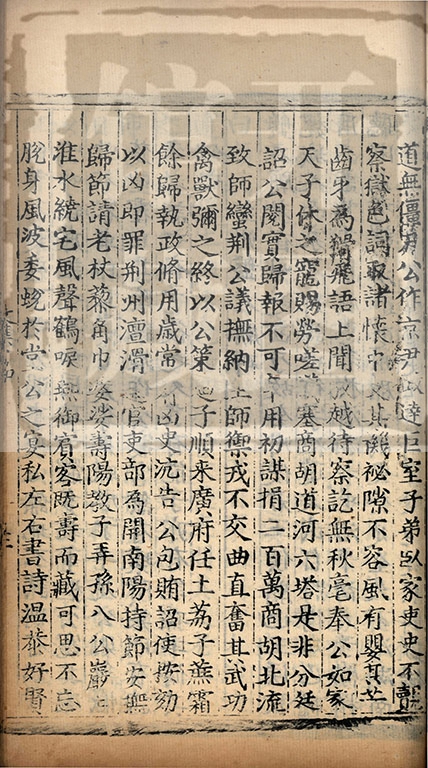 道無僵公作京尹政達巨室子弟以家吏史不
察獄色詞取諸懷中其機祕隙不容風有嬰其芒
齒牙為飛語上聞越待察訖無秋毫奉公如家
天子休之寵賜勞嗟塞商胡道河六塔是非分廷
詔公閱實歸報不可用初謀捐二百萬商胡北流
致師蠻荊公議撫納王師禦戎不交曲直奮其武功
禽獸獮之終以公策子順来廣府任土荔子蕉霜
餘歸執政脩用歲常凶史沆告公包賄詔使按劾
以凶即罪荊州澶滑官吏部為開南陽持節安撫
歸節請老杖藜角巾婆娑壽陽教子弄孫八公巖
淮水繞宅風聲鶴唳無御賓客既壽而藏可思不忘
脫身風波委蛻於常公之宴私左右書詩温恭好賢